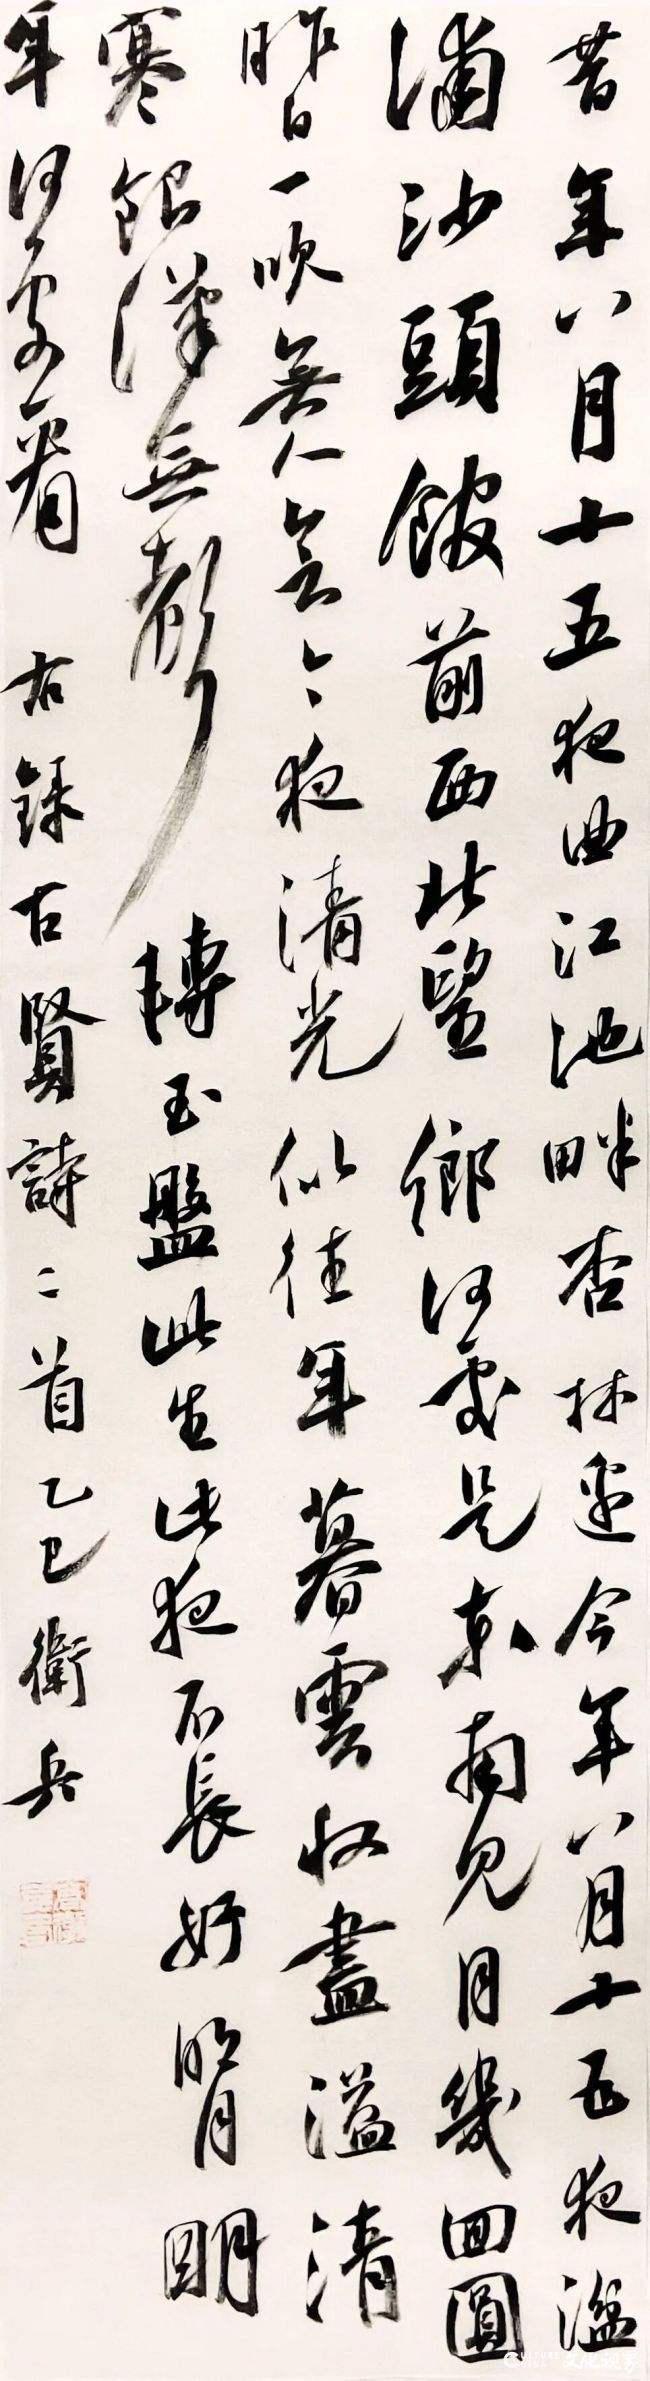 昔年八月十五夜曲江池畔杏林邊今年八月十五夜湓
浦沙頭館前西北望鄉何處是東南見月幾回圓
昨日一吹無人會今夜清光似往年暮雲收盡溢清
寒銀漢無聲轉玉盤此生此夜不長好明月明
年何處看 右錄古賢詩二首 乙巳 衛兵
CULTURE CHINA 文化视界